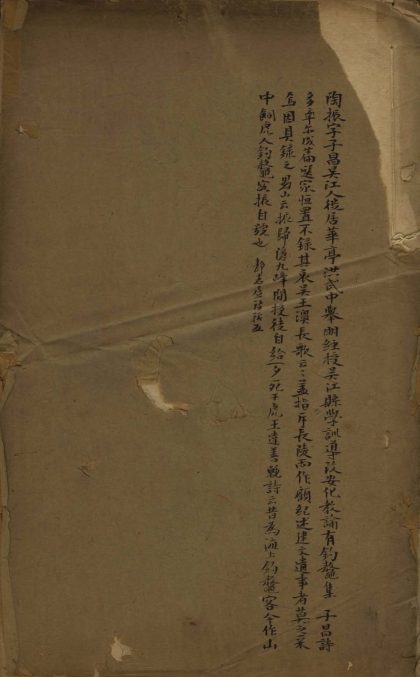 陶振字子昌吳江人後居華亭洪武中舉明經授吳江縣學訓導改安化教諭有釣鼇集　子昌詩
多率尔成篇選家恒置不錄其哀吳王濞長歌云云蓋指斥長陵而作顧紀述建文遺事者莫之采
焉因具錄之　易山云振歸隱九峰間授徒自給一夕死于虎王達善輓詩云昔為海上釣鼇客今作山
中飼虎人釣鼇客振自號也